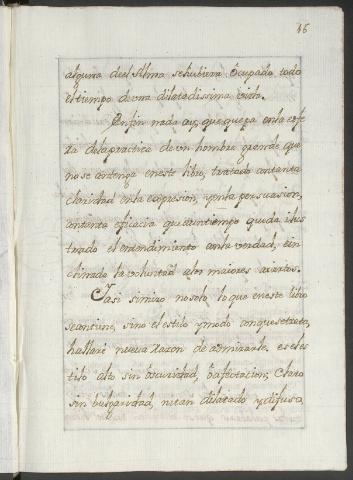 46
alguna deel Alma sehubiera ocupado todo
el tiempo de vna dilatadissima vida.
Enfin nada ay, que quepa enla esfe
ra dela practica de vn hombre grande que
no se contenga en este libro, tratado contanta
claridad enla expresion, y enla persuasion,
contanta eficacia que auntiempo queda ilus
trado el entendimiento conla verdad, e in
clinado la voluntad alos maiores aciertos.
Iasi simiro nosolo lo que eneste libro
secontiene, sino el estilo y modo conquesetrata,
hallaré nueva Razon de admirarle. es el es
tilo alto sin oscuridad, ô afectacion; Claro
sin bulgaridad, ni tan dilatado y difuso,